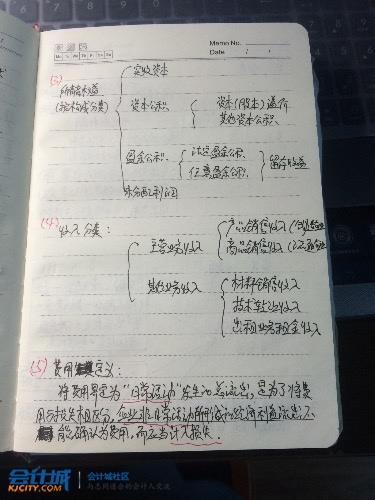 Memo No.
Mo Tu We Th Fr Sa Su
Date / /
(3)
所有者权益
(按构成分类)
实收资本
资本公积
资本(股本)溢价
其他资本公积
盈余公积
法定盈余公积
任意盈余公积
留存收益
未分配利润
(4) 收入分类:
主营业务收入
产品销售收入(
商品销售收入(
其他业务收入
材料销售收入
技术转让收入
出租业务租金收入
(5) 费用 定义:
将费用界定为“日常活动”发生的总流出,是为了将费
用与损失相区分,企业非日常活动所形成的经济利益流出不
能确认为费用,而应当计入损失。
会计城
KJCITY.COM
会计城社区
与志同道合的会计人交流